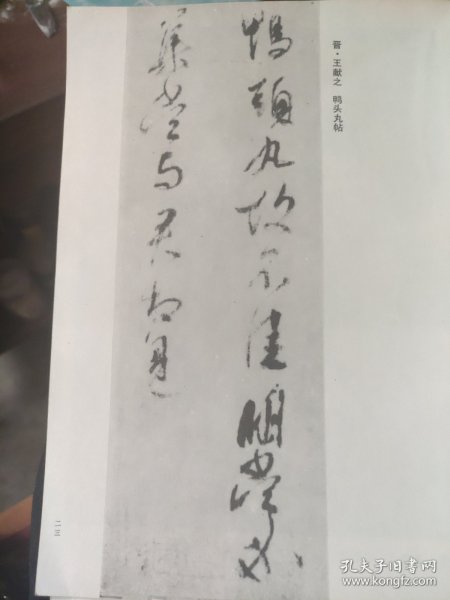 晋·王献之 鸭头丸帖
鴨頭丸故不佳明當必
集當与君相見
二三
孔夫子旧书网
www.kongfz.com